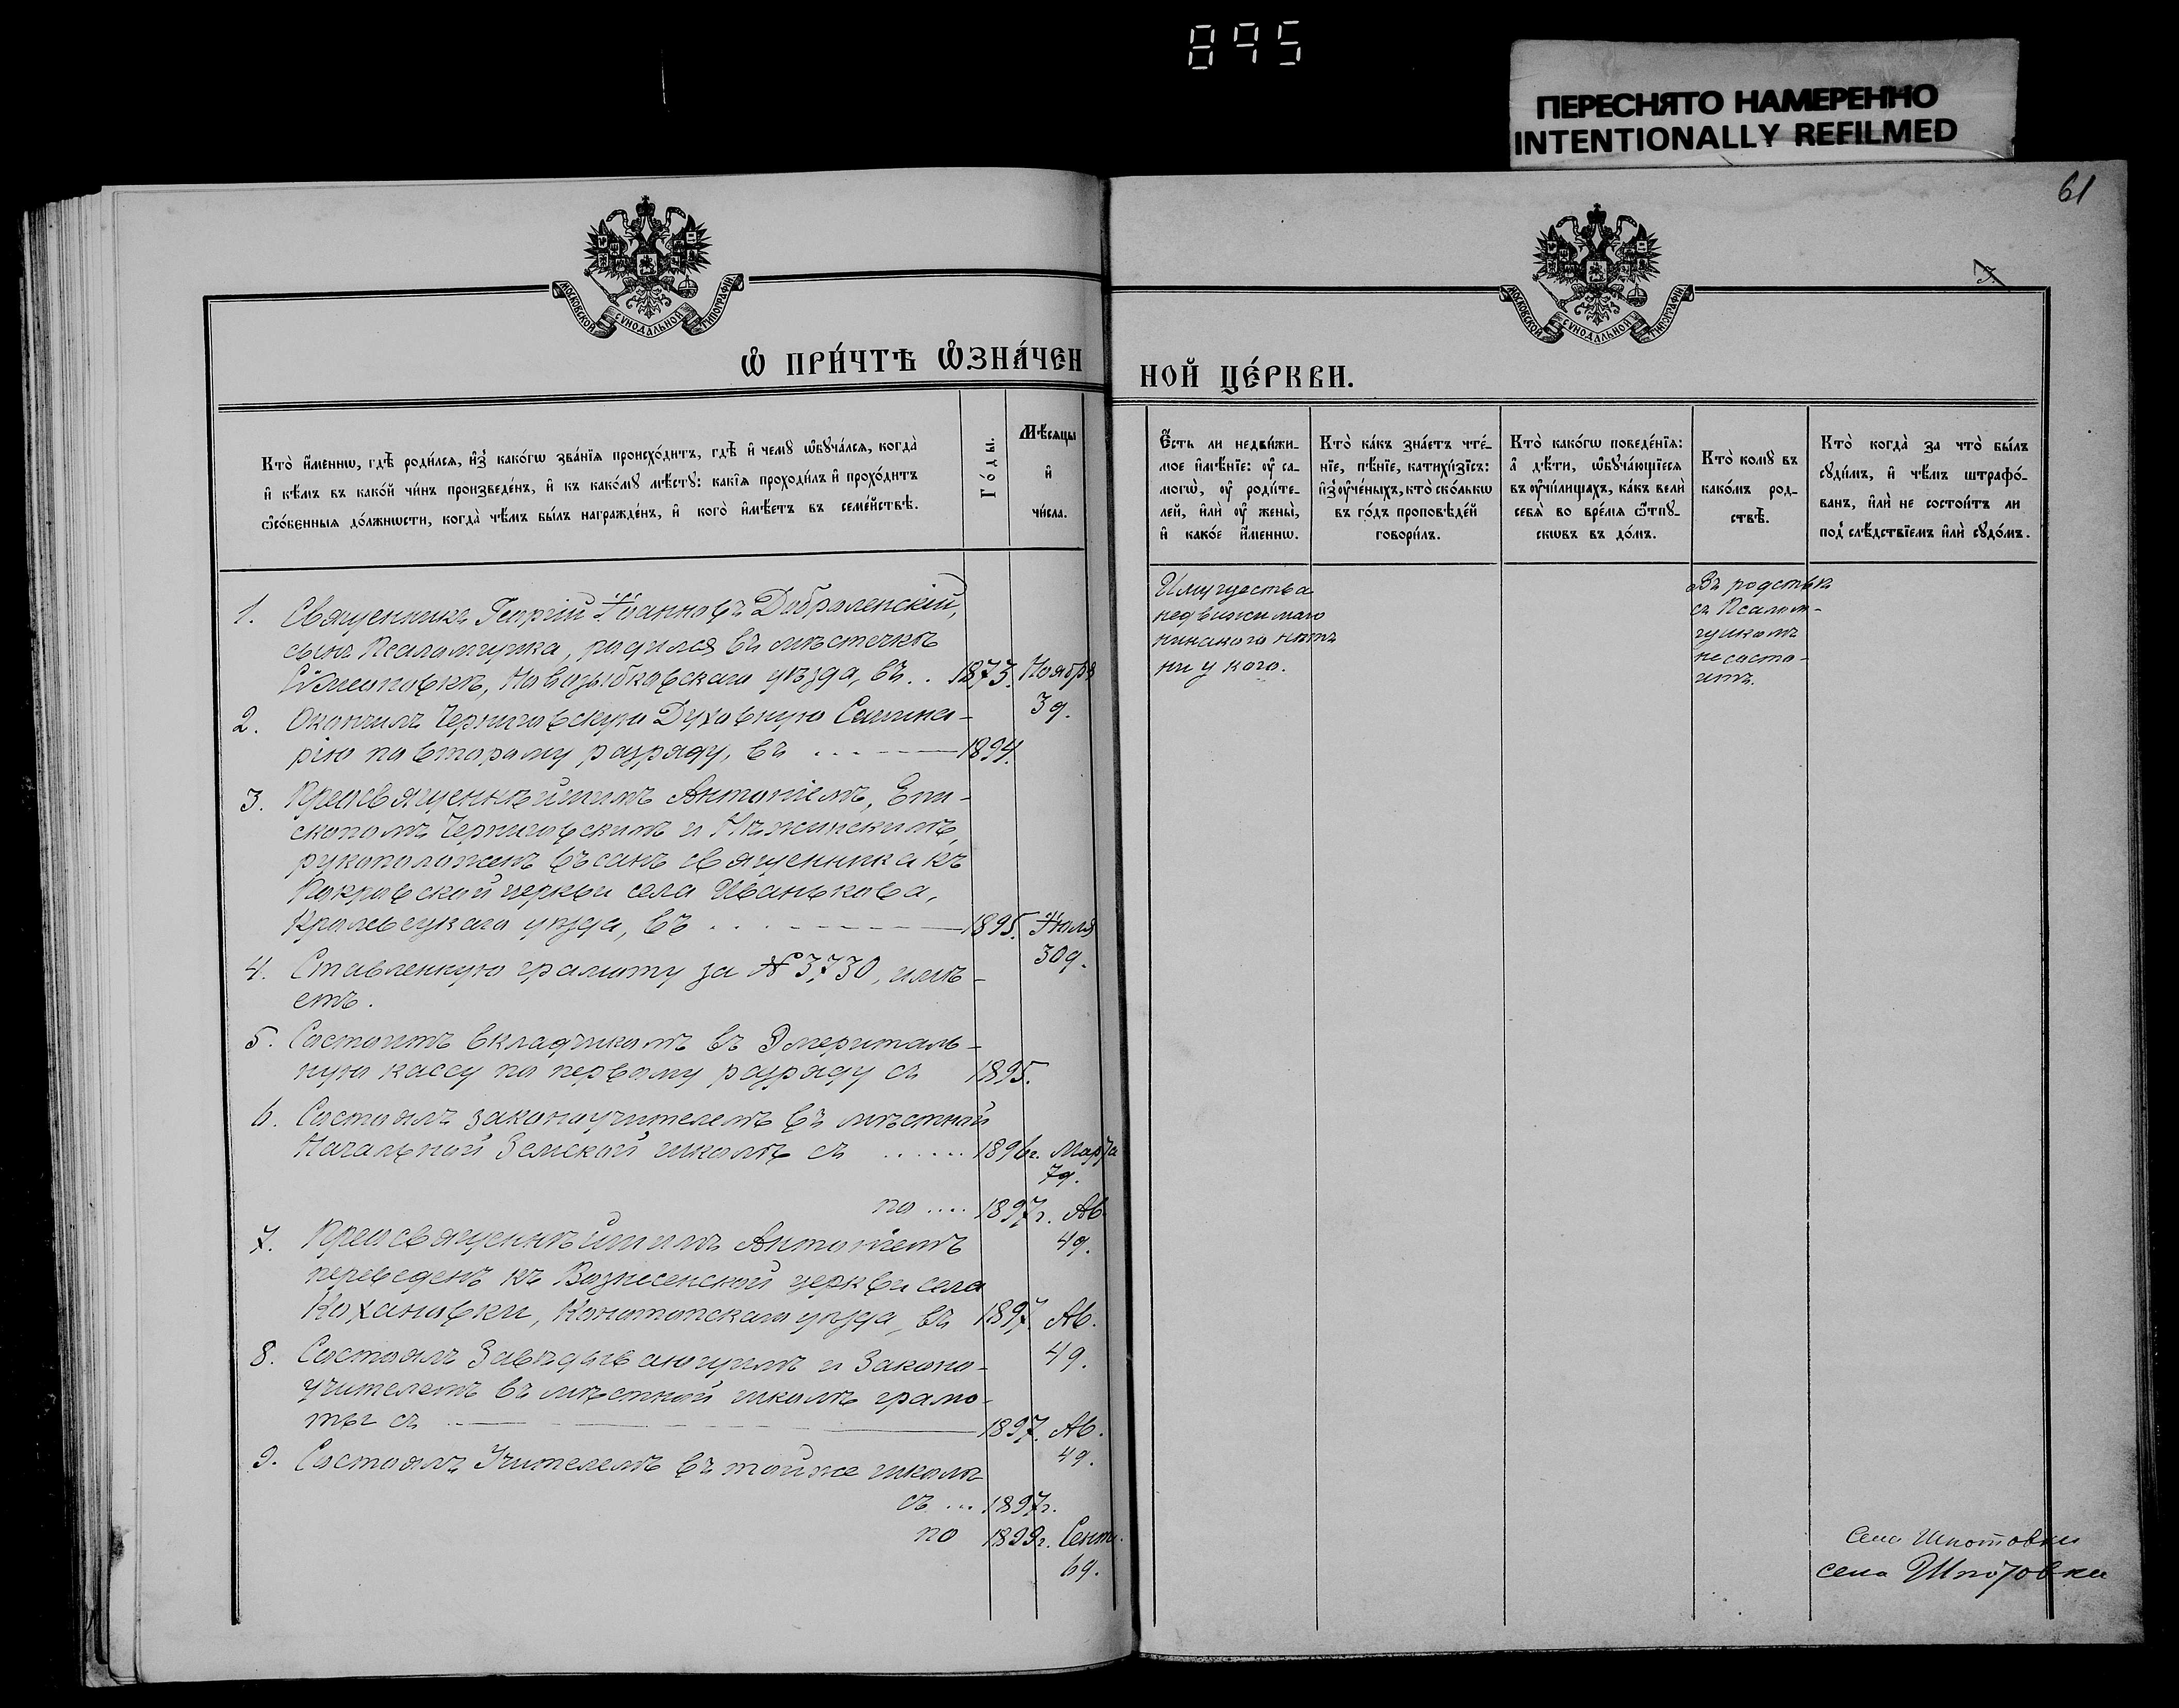 895
ПЕРЕСНЯТО НАМЕРЕННО
INTENTIONALLY REFILMED
61
МОСКОВСКОЙ СѴНОДАЛЬНОЙ ТИПОГРАФІИ
МОСКОВСКОЙ СѴНОДАЛЬНОЙ ТИПОГРАФІИ
Ѽ ПРИ́ЧТѢ Ѽ҆ЗНА́ЧЕН
НОЙ ЦЕ́РКВИ.
Кто̀ и҆́меннѡ, гдѣ̀ роди́лсѧ, и҆з̾ какѡ́гѡ зва́нїѧ происхо́дитъ, гдѣ̀ и҆ чемꙋ̀ ѡ҆бꙋча́лсѧ, когда̀
и҆ кѣ́мъ въ како́й чи́нъ произведе́нъ, и҆ къ како́мꙋ мѣ́стꙋ: какі̑ѧ проходи́лъ и҆ прохо́дитъ
ѻ҆со́бенныѧ до́лжнѡсти, когда̀ чѣ́мъ бы́лъ награжде́нъ, и҆ кого̀ и҆мѣ́етъ въ семе́йствѣ.
Го́ды.
Мѣ́сѧцы
и҆
чи́сла.
Є҆́сть ли недви́жи-
мое и҆мѣ́нїе: ᲂу҆ са-
могѡ̀, ᲂу҆ роди́те-
лей, и҆лѝ ᲂу҆ жены̀,
и҆ како́е и҆́меннѡ.
Кто̀ ка́къ зна́етъ чте́-
нїе, пѣ́нїе, катихи́зїсъ:
и҆з̾ ᲂу҆че́ныхъ, кто̀ ско́лькѡ
въ го́дъ проповѣ́дей
говори́лъ.
Кто̀ како́гѡ поведе́нїѧ:
а҆ дѣ́ти, ѡ҆бꙋча́ющїесѧ
въ ᲂу҆чи́лищахъ, ка́къ велѝ
себѧ̀ во вре́мѧ ѿпꙋ-
скѡвъ въ до́мъ.
Кто̀ комꙋ̀ въ
како́мъ род-
ствѣ̀.
Кто̀ когда̀ за что̀ бы́лъ
сꙋди́мъ, и҆ чѣ́мъ штрафо́-
ванъ, и҆лѝ не состои́тъ ли
под̾ слѣ́дствїемъ и҆лѝ сꙋдо́мъ.
1. Священникъ Георгій Іоанновъ Доброленскій,
сынъ Псаломщика, родился въ мѣстечкѣ
Новозыбковскаго уѣзда, въ . . 1873. Ноября
3 д.
2. Окончилъ Черниговскую Духовную Семина-
рію по второму разряду, въ . . . 1894.
3. Преосвященнѣйшимъ Антоніемъ, Епи-
скопомъ Черниговскимъ и Нѣжинскимъ,
рукоположенъ въ санъ священника къ
Покровской церкви села Иванькова,
Кролевецкаго уѣзда, въ . . . 1895. Іюля
30 д.
4. Ставленную грамоту за № 3730, имѣ-
етъ.
5. Состоитъ вкладчикомъ въ Эмериталь-
ную кассу по первому разряду съ 1895.
6. Состоялъ законоучителемъ въ мѣстной
Начальной Земской школѣ съ ...... 1896 г. Марта
7 д.
по .... 1897 г. Ав.
4 д.
7. Преосвященнѣйшимъ Антоніемъ
переведенъ къ Вознесенской церкви села
Кохановки, Конотопскаго уѣзда, въ 1897. Ав.
4 д.
8. Состоялъ Завѣдывающимъ и Законо-
учителемъ въ мѣстной школѣ грамо-
ты съ 1897. Ав.
4 д.
9. Состоялъ Учителемъ въ той же школѣ
съ ... 1897 г.
по 1899 г. Сент.
6 д.
Имущества
недвижимаго
никакого нѣтъ
ни у кого.
Въ родствѣ
съ Псалом-
щикомъ
не состо-
итъ.
Села Шпотовки
села Шпотовки